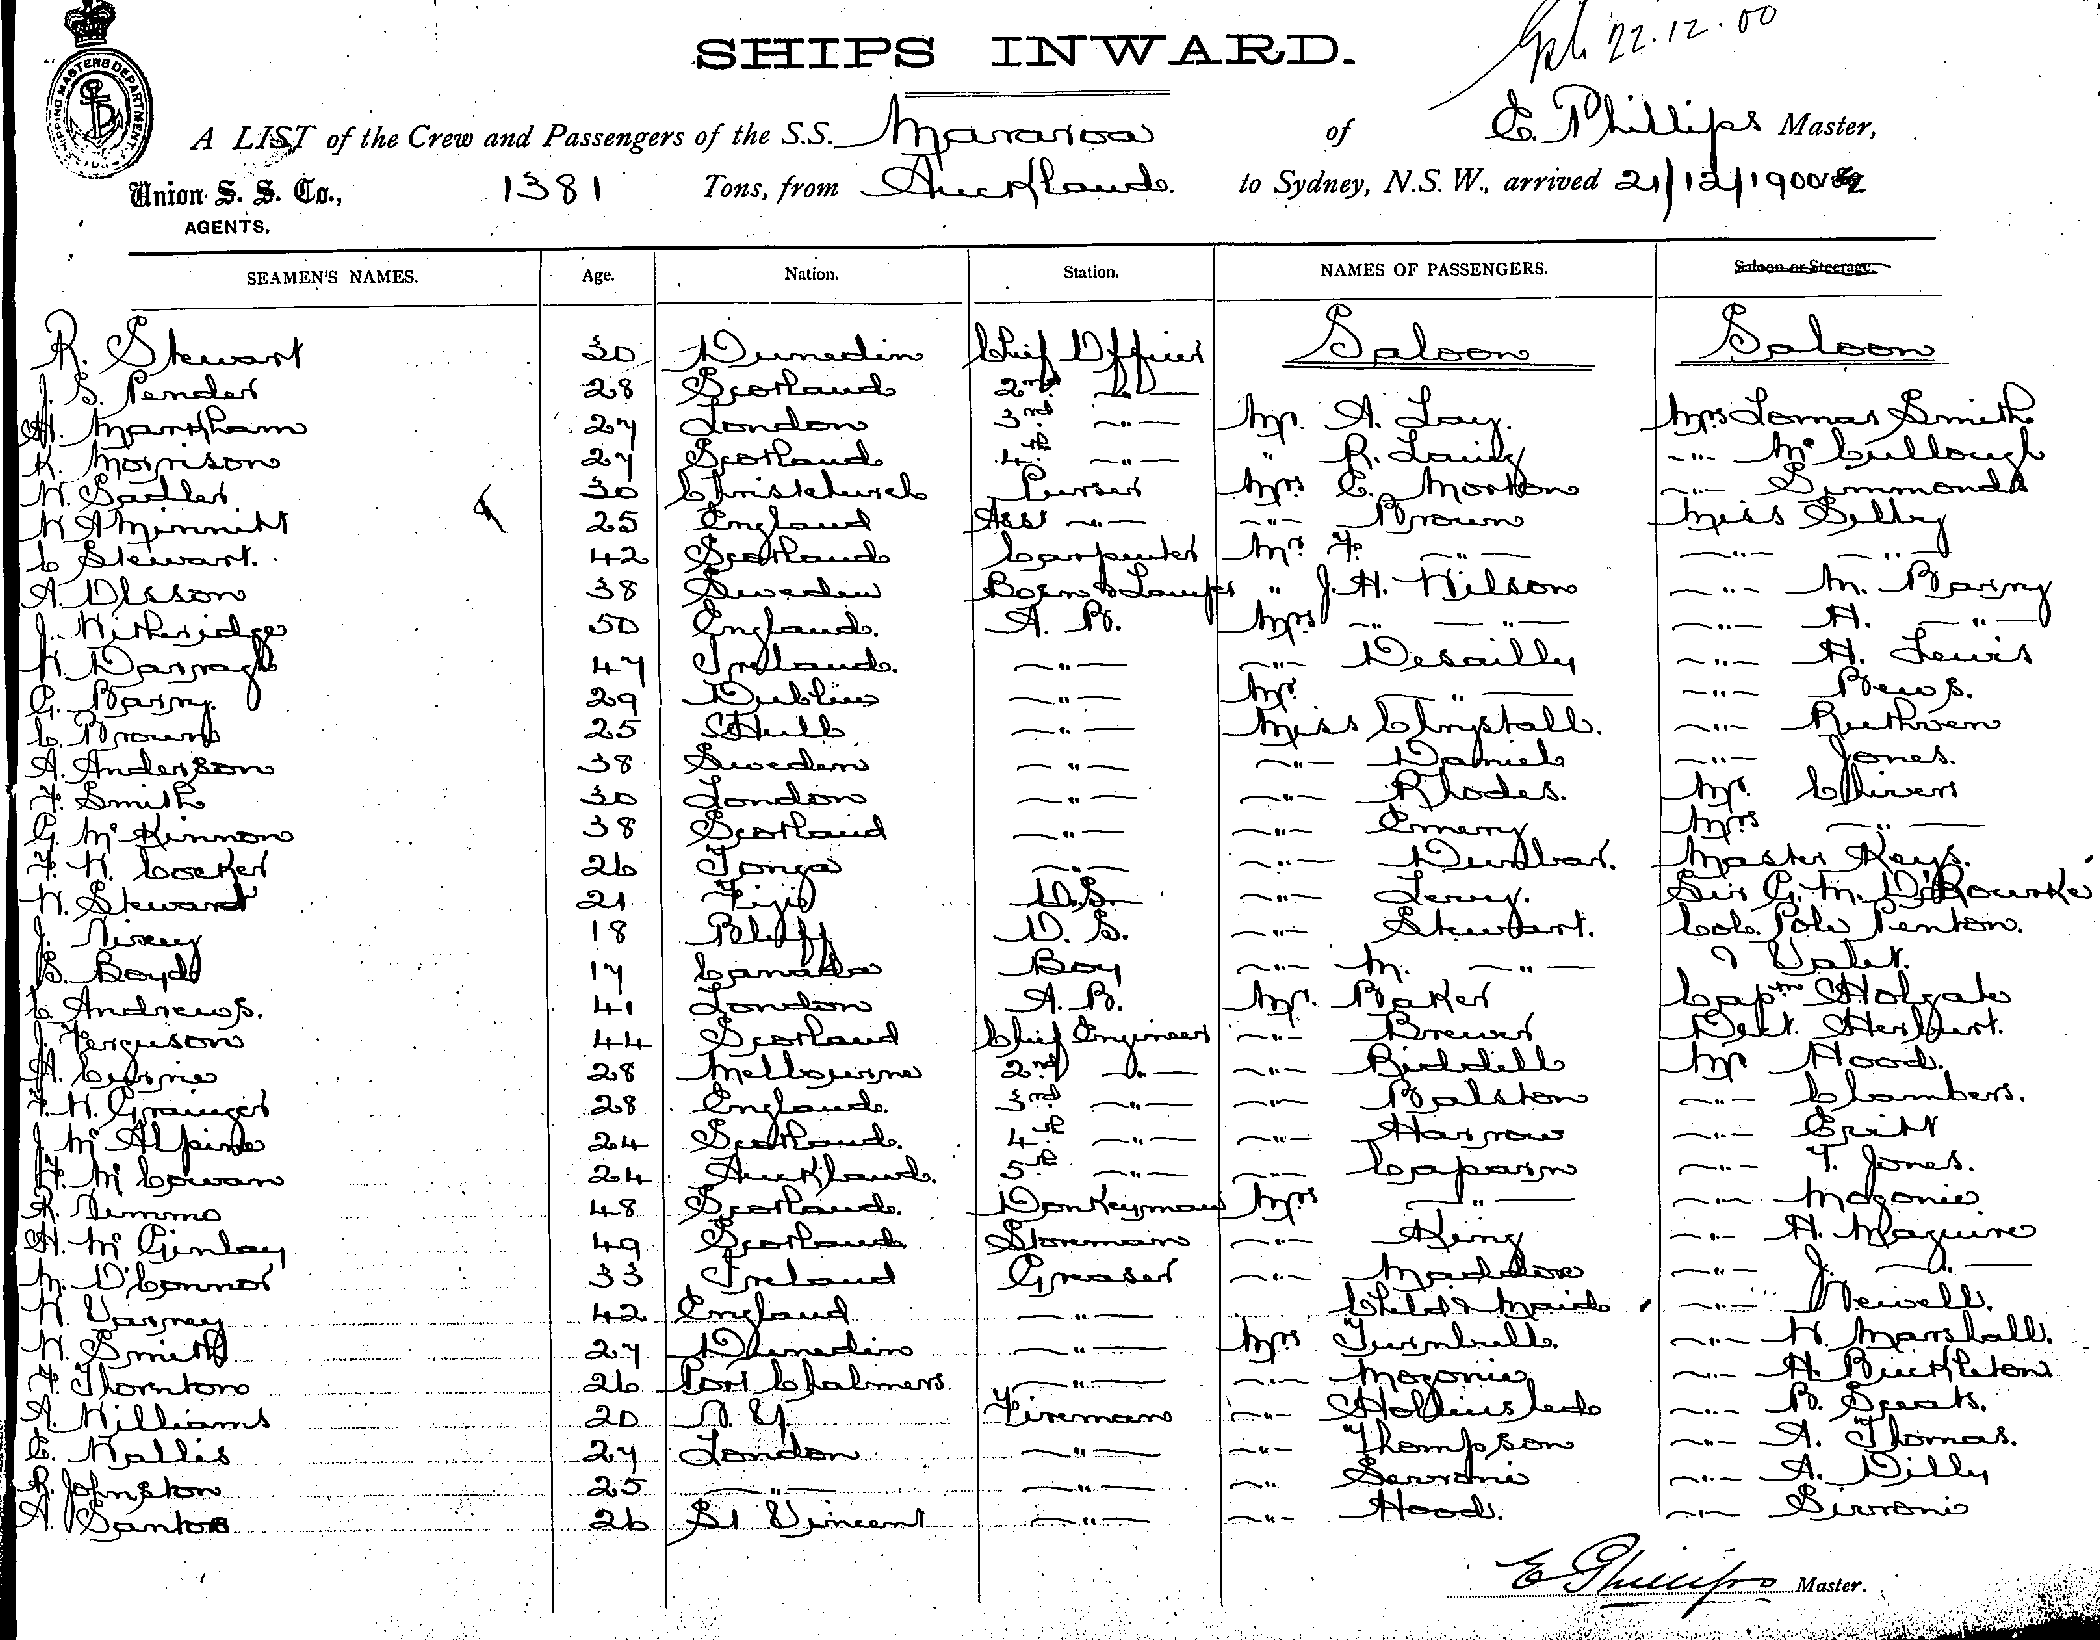 SHIPS INWARD.
22.12.00
SHIPPING MASTERS DEPARTMENT
A LIST of the Crew and Passengers of the S.S. Mararoa of E. Phillips Master,
Union S. S. Co., 1381 Tons, from Auckland. to Sydney, N.S.W., arrived 21/12/1900
AGENTS.
SEAMEN'S NAMES. Age. Nation. Station. NAMES OF PASSENGERS. Saloon or Steerage.
R. Stewart 30 Dunedin Chief Officer Saloon Saloon
J. S. Pender 28 Scotland 2nd —"—
H. Markham 27 London 3rd —"— Mr. A. Lay. Mrs Lomas Smith
K. Morrison 27 Scotland 4th —"— " R. Laing —"— McCullough
W. Sadler 30 Christchurch Purser Mrs E. Morton —"— Simmonds
W A Minnitt 25 England Asst —"— —"— Brown Miss Selby
C Stewart. 42 Scotland Carpenter Mr. F. —"— —"— —"—
A Olsson 38 Sweden Bosn & Lamps " J. H. Wilson —"— M. Barry
J. Witheridge 50 England. A. B. Mrs —"— —"— —"— H. —"—
W. Darragh 47 Ireland. —"— —"— Desailly —"— H. Lewis
G. Barry. 29 Dublin —"— Mr. —"— —"— Bews.
C. Brown 25 Hull —"— Miss Chrystall. —"— Ruthven
A. Anderson 38 Sweden —"— —"— Daniel —"— Jones.
F. Smith 30 London —"— —"— Rhodes. Mr.
G. McKinnon 38 Scotland —"— —"— Emery Mrs —"—
F. W. Cocker 26 Tonga —"— —"— Dunbar. Master Keys.
W. Steward 21 Fiji O.S. —"— Levy. Sir G. M. O'Rourke
J. 18 Bluff O. S. —"— Stewart. Col. Pole Penton.
E. Boyd 17 Canada Boy —"— M. —"— & Valet.
C Andrews. 41 London A. B. Mr. Baker Captn Holgate
J. Ferguson 44 Scotland Chief Engineer —"— Brewer Herbert.
A. 28 Melbourne 2nd —"— —"— Biddell Mr Hood.
F. W. Grainger 28 England. 3rd —"— —"— Ralston —"— Chambers.
J. McAlpine 24 Scotland. 4th —"— —"— Harrow —"—
H. McCowan 24 Auckland. 5th —"— —"— Caparn —"— T. Jones.
R. Nimmo 48 Scotland. Donkeyman Mrs —"— —"— Mozonie
A. McGinlay 49 Scotland Storeman —"— King —"— H. Maguire
M. O'Connor 33 Ireland Greaser —"— —"— J. —"—
W Varney 42 England —"— Child & Maid —"— Newell.
W. Smith 27 Dunedin —"— Mrs Turnbull. —"— W. Marshall.
F. Thornton 26 Port Chalmers —"— —"— Mozonie —"— H. Buckleton
A. Williams 20 N. Y. Fireman —"— —"— B. Speats.
E. Wallis 27 London —"— —"— Thompson —"— A. Thomas.
R. Johnston 25 —"— —"— —"— —"— A. Dilly
A. Santos 26 St Vincent —"— —"— Hood. —"—
E Phillips Master.